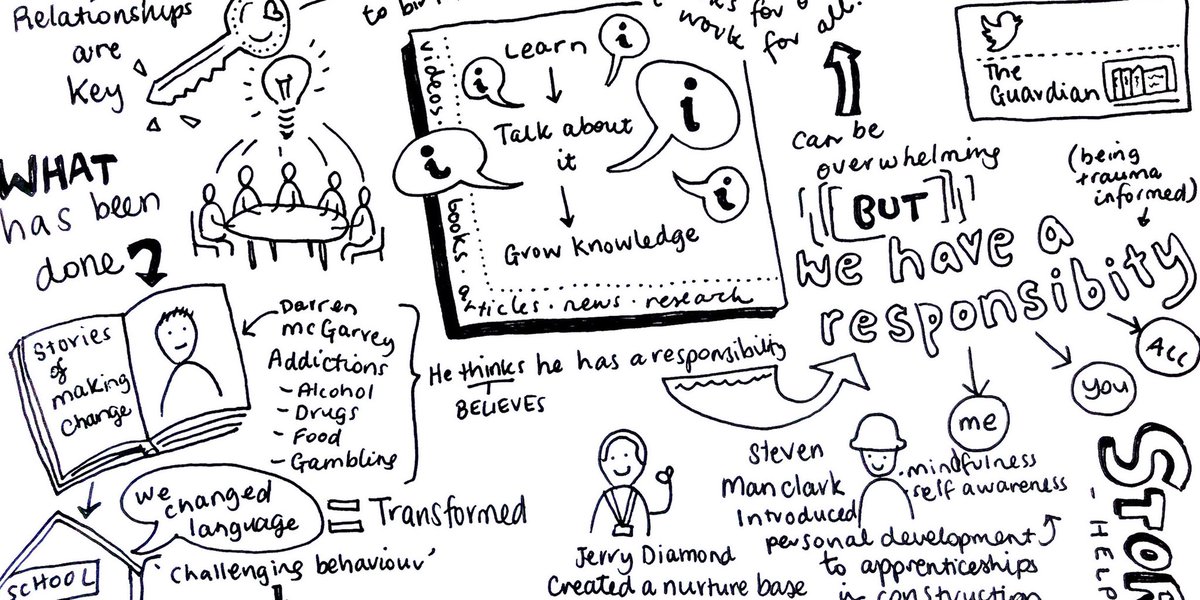 Relationships
are
key
Learn
Talk about
it
Grow knowledge
videos.
books.
articles . news . research
i
i
i
i
i
work
for all.
can be
overwhelming
BUT
we have a
responsibity
(being
trauma
informed)
ALL
you
me
The
Guardian
WHAT
has been
done?
Stories
of
making
change
Darren
McGarvey
Addictions
- Alcohol
- Drugs
- Food
- Gambling
He thinks he has a responsibility
BELIEVES
we
changed
language
= Transformed
'challenging behaviour'
SCHOOL
Jerry Diamond
Created a nurture base
Steven
Manclark
Introduced
. mindfulness
self awareness
personal development
to apprenticeships
in construction
- HELP